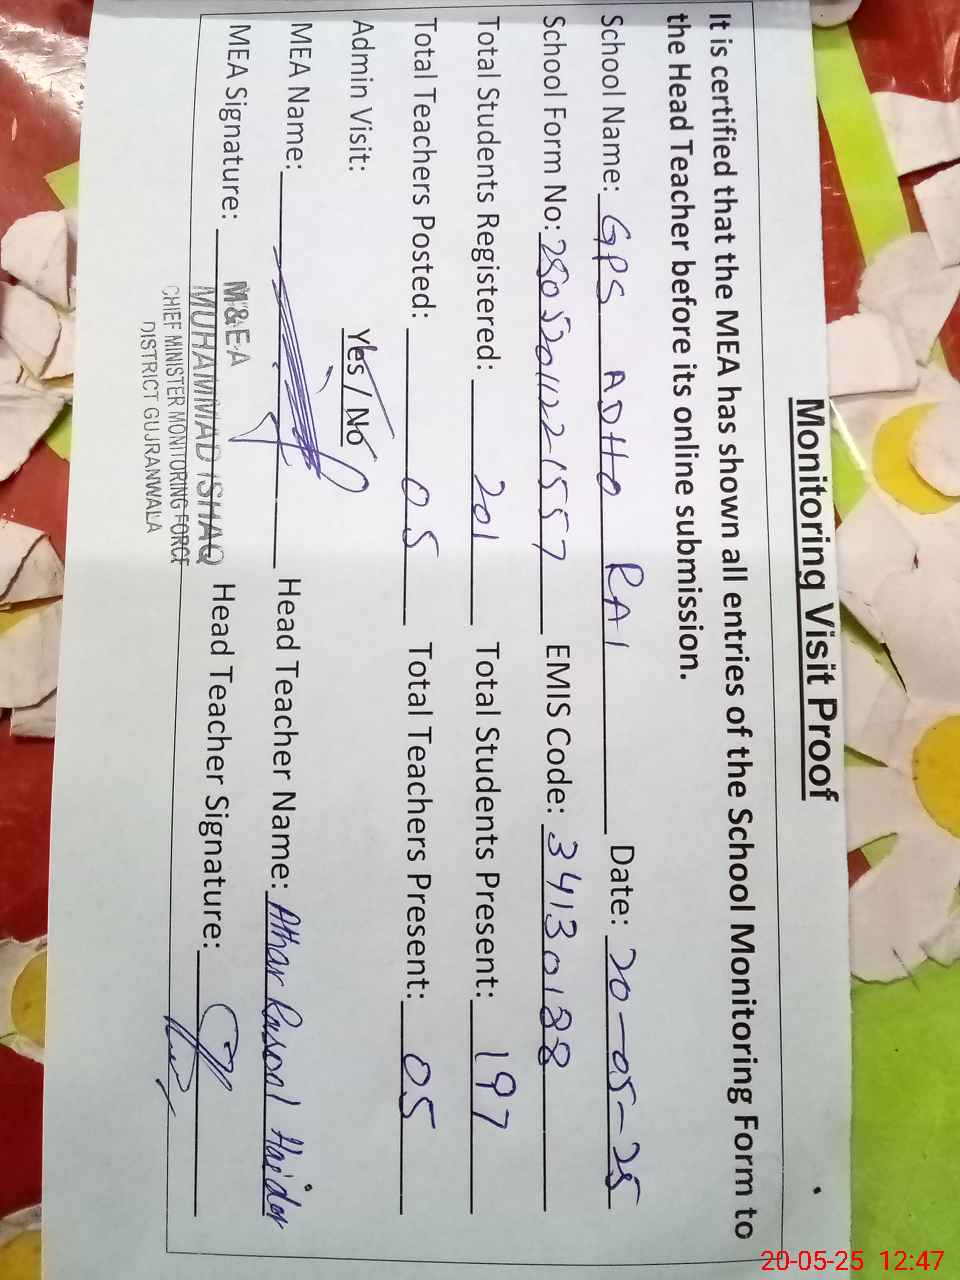 Monitoring Visit Proof
It is certified that the MEA has shown all entries of the School Monitoring Form to
the Head Teacher before its online submission.
School Name: GPS ADHO RAI Date: 20-05-25
School Form No: 28052011221557 EMIS Code: 34130188
Total Students Registered: 201 Total Students Present: 197
Total Teachers Posted: 05 Total Teachers Present: 05
Admin Visit: Yes / No
MEA Name: Head Teacher Name: Athar Rasool Haider
MEA Signature: Head Teacher Signature:
M&EA
MUHAMMAD ISHAQ
CHIEF MINISTER MONITORING FORCE
DISTRICT GUJRANWALA
20-05-25 12:47